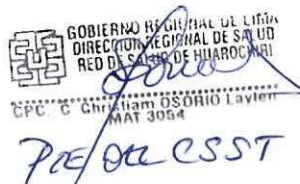 GOBIERNO REGIONAL DE LIMA
DIRECCION REGIONAL DE SALUD
RED DE SALUD DE HUAROCHIRI
CPC. C Christiam OSORIO Laylen
MAT 3054
CSST